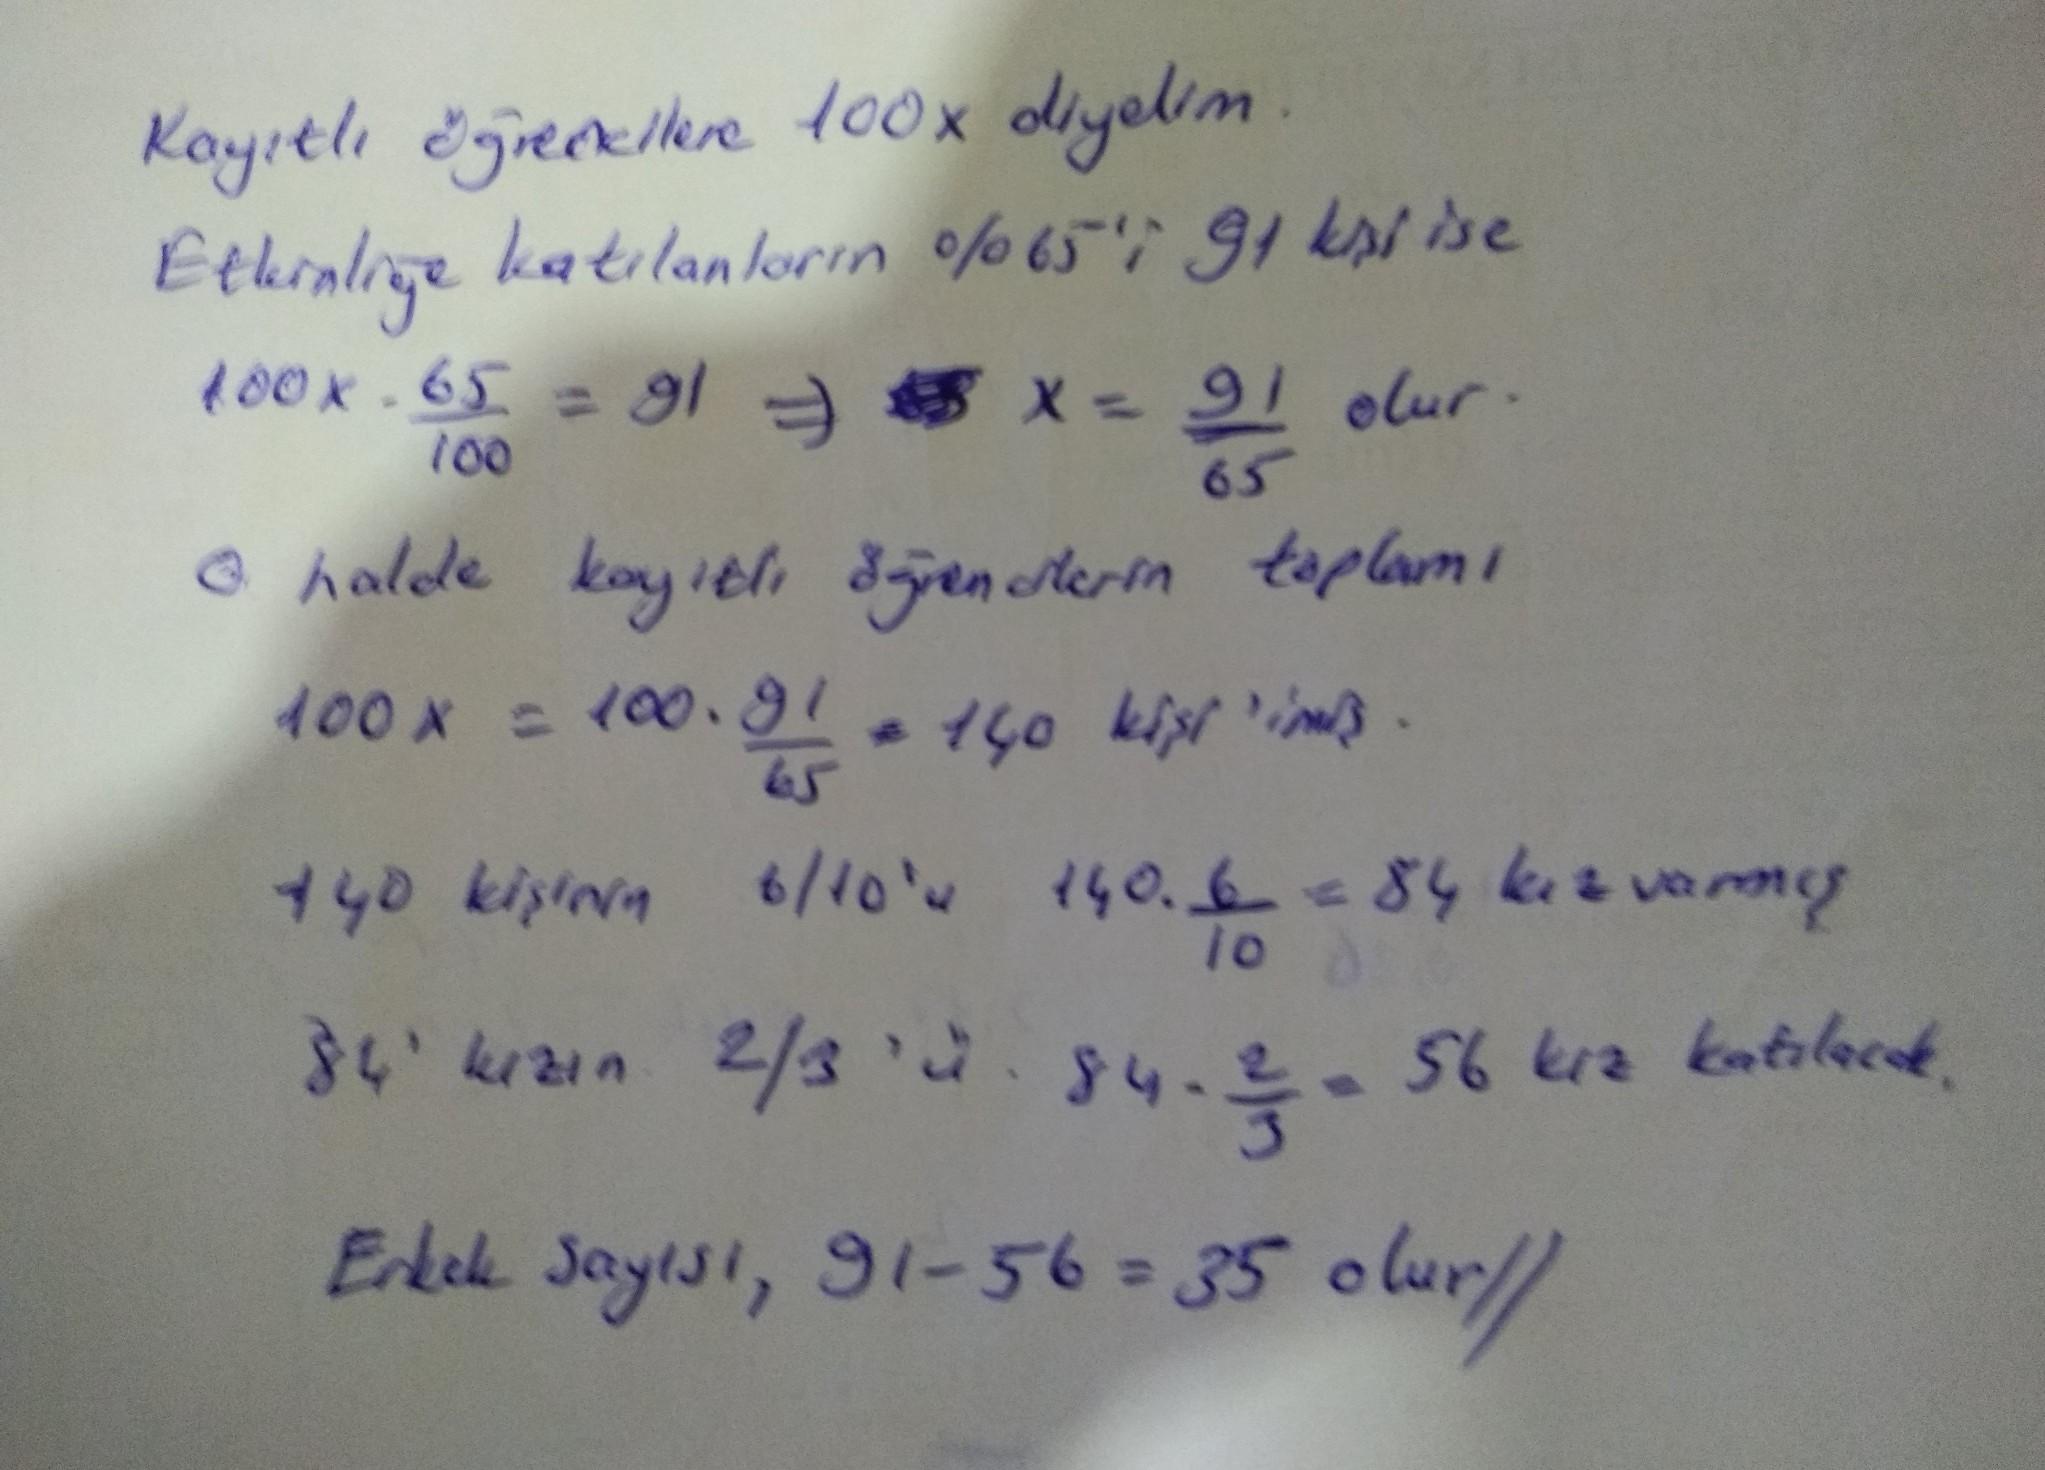 Kayıtlı öğrencilere 100x diyelim.
Etkinliğe katılanların %65'i 91 kişi ise
100x . 65/100 = 91 ⇒ x = 91/65 olur.
O halde kayıtlı öğrencilerin toplamı
100x = 100 . 91/65 = 140 kişi 'imiş.
140 kişinin 6/10'u 140 . 6/10 = 84 kız varmış
84' kızın 2/3 'ü . 84 . 2/3 = 56 kız katılacak.
Erkek sayısı, 91-56 = 35 olur//